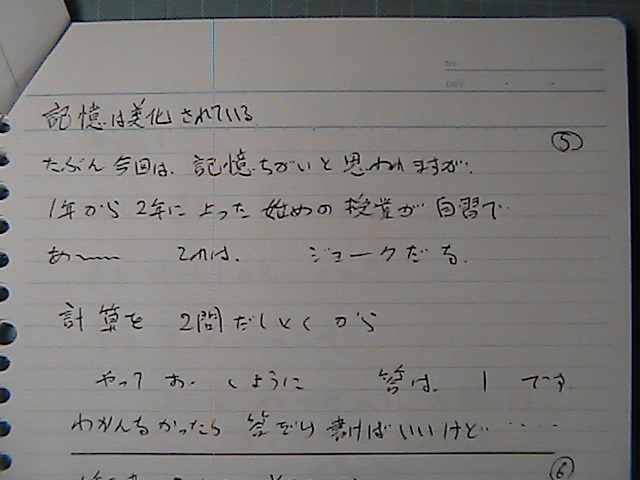 No.
DATE
記憶は美化されている
⑤
たぶん今回は、記憶ちがいと思われますが、
1年から2年に上った始めの授業が自習で
あ〜 これは、 ジョークだな。
計算を 2問だしとくから
やって お、しように 答は、1です
わかんなかったら 答だけ書けばいいけど・・・・
⑥